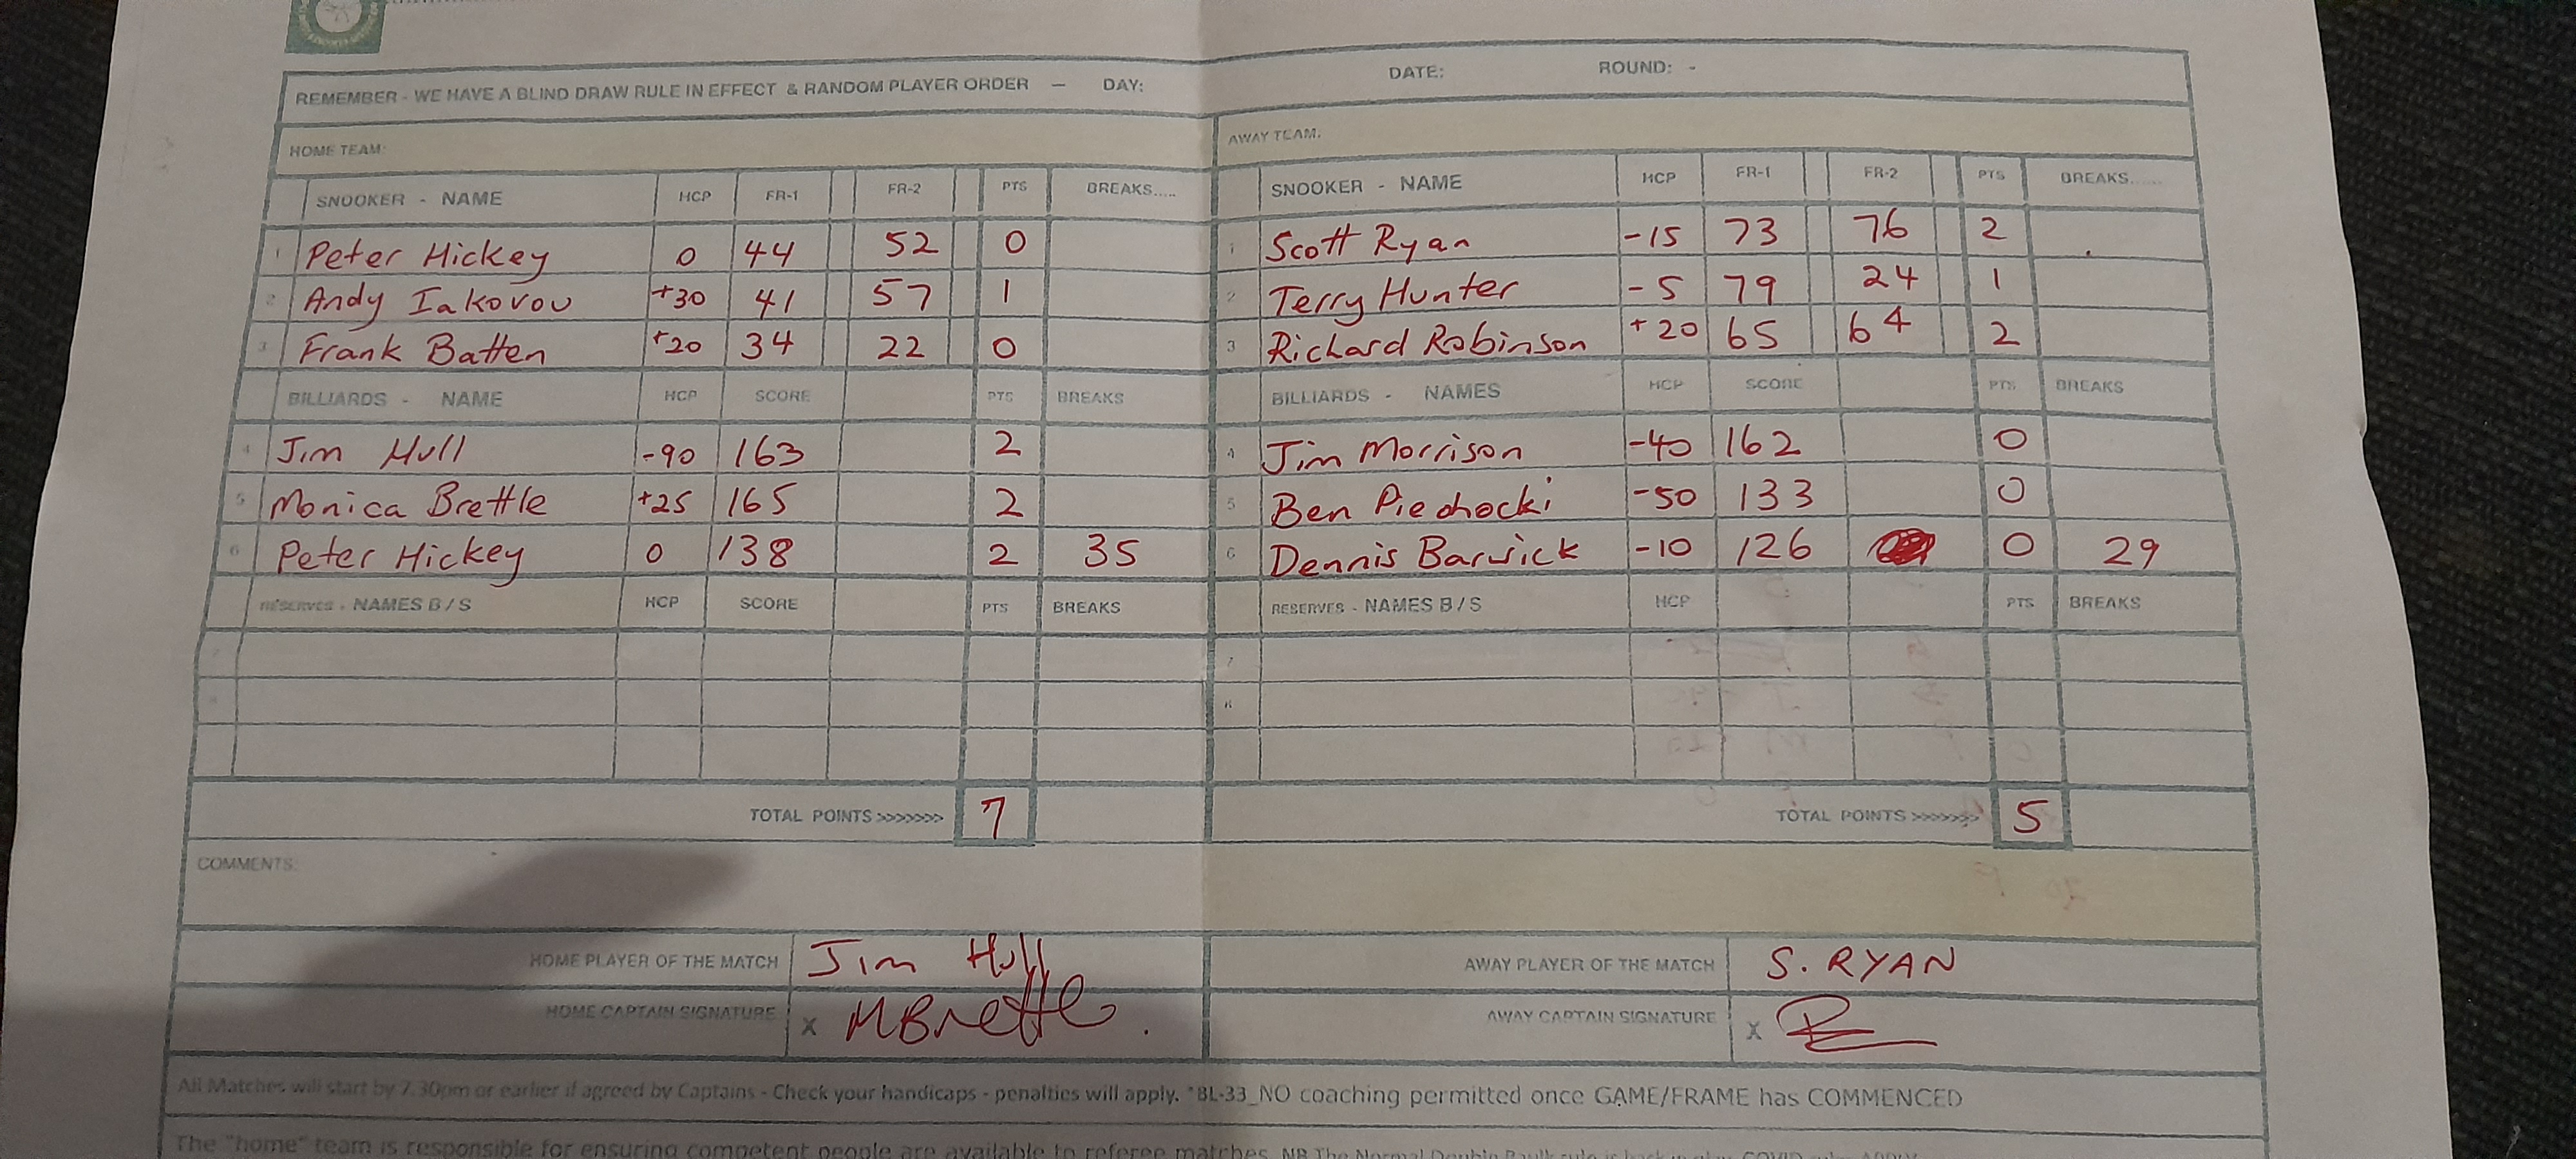 REMEMBER - WE HAVE A BLIND DRAW RULE IN EFFECT & RANDOM PLAYER ORDER — DAY: DATE: ROUND: -
HOME TEAM: AWAY TEAM:
SNOOKER - NAME HCP FR-1 FR-2 PTS BREAKS..... SNOOKER - NAME HCP FR-1 FR-2 PTS BREAKS......
1 Peter Hickey 0 44 52 0 1 Scott Ryan -15 73 76 2
2 Andy Iakovou +30 41 57 1 2 Terry Hunter -5 79 24 1
3 Frank Batten +20 34 22 0 3 Richard Robinson +20 65 64 2
BILLIARDS - NAME HCP SCORE PTS BREAKS BILLIARDS - NAMES HCP SCORE PTS BREAKS
4 Jim Hull -90 163 2 4 Jim Morrison -40 162 0
5 Monica Brettle +25 165 2 5 Ben Piechocki -50 133 0
6 Peter Hickey 0 138 2 35 6 Dennis Barwick -10 126 0 29
RESERVES - NAMES B / S HCP SCORE PTS BREAKS RESERVES - NAMES B / S HCP PTS BREAKS
7 7
8
TOTAL POINTS >>>>>>> 7 TOTAL POINTS >>>>>>> 5
COMMENTS:
HOME PLAYER OF THE MATCH Jim Hull AWAY PLAYER OF THE MATCH S. RYAN
HOME CAPTAIN SIGNATURE X MBrettle AWAY CAPTAIN SIGNATURE X
All Matches will start by 7.30pm or earlier if agreed by Captains - Check your handicaps - penalties will apply. *BL-33_NO coaching permitted once GAME/FRAME has COMMENCED
The "home" team is responsible for ensuring competent people are available to referee matches. NB The Normal Double Baulk rule is back in